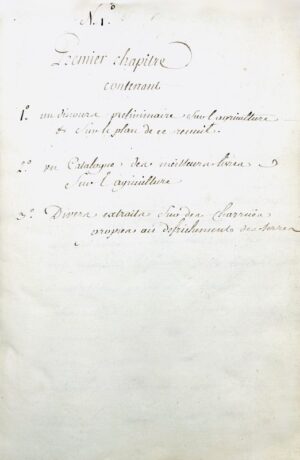 N. 1.º
Premier chapitre
contenant
1º. un discours preliminaire sur l'agriculture
& sur le plan de ce recueil.
2º. un Catalogue des meilleurs livres
sur l'agriculture
3º. Divers extraits sur des charrües
propres au defrichement des terres